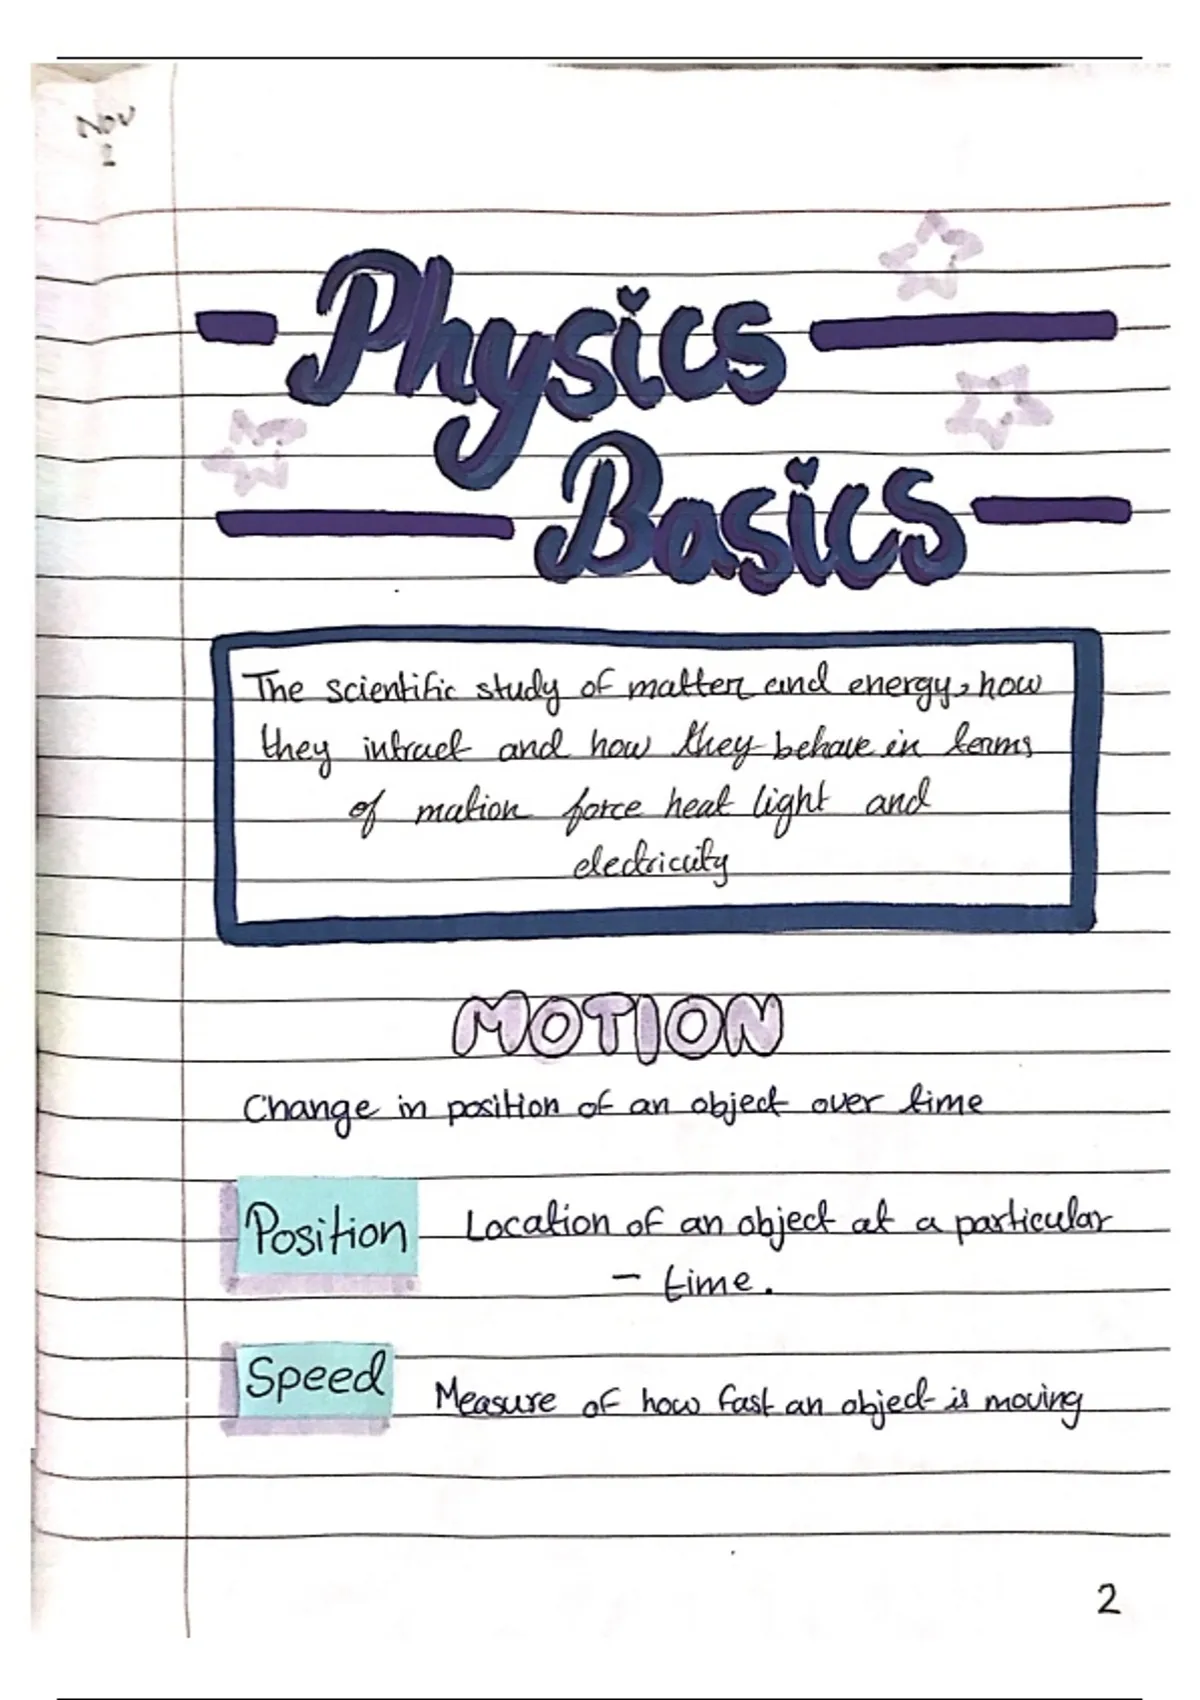 Nov
Physics
Basics
The scientific study of matter and energy, how
they intract and how they behave in terms
of motion force heat light and
electricity
MOTION
Change in position of an object over time
Position Location of an object at a particular
- time.
Speed Measure of how fast an object is moving
2